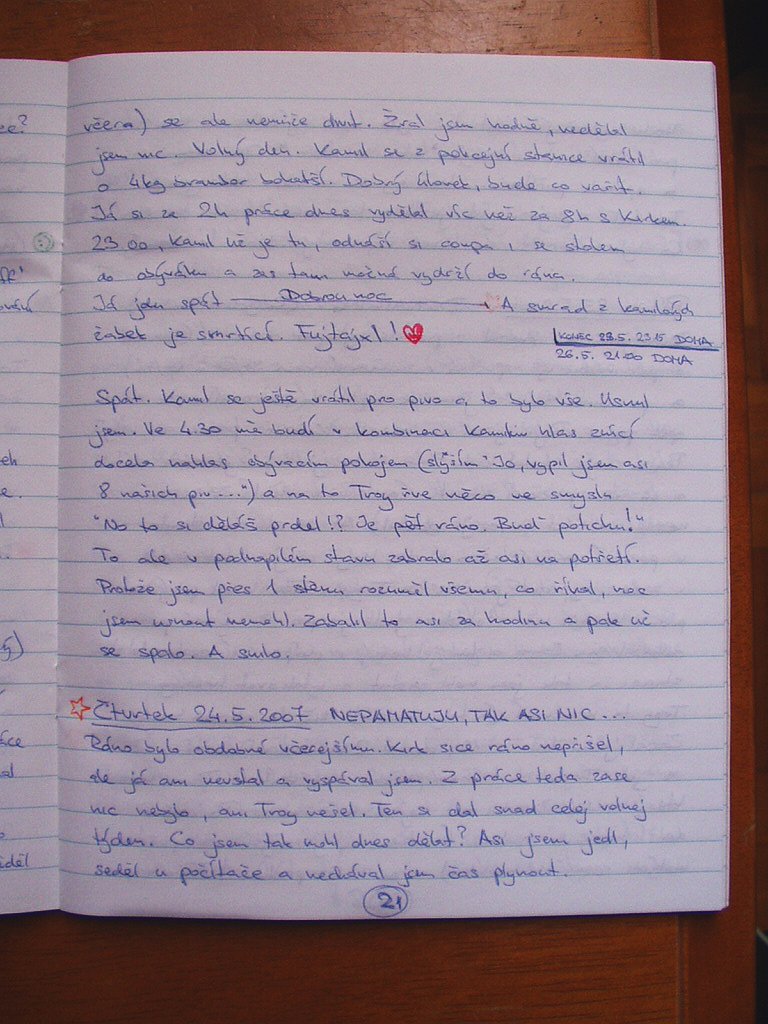 včera) se ale nemůže divit. Žral jsem hodně, nedělal
jsem nic. Volný den. Kamil se z policejní stanice vrátil
o 4kg brambor bohatší. Dobrý člověk, bude co vařit.
Já si za 2h práce dnes vydělal víc než za 8h s Kirkem.
23 00, Kamil už je tu, odnáší si compa i se stolem
do obýváku a zas tam možná vydrží do rána.
Já jdu spát Dobrou noc A smrad z kamilových
žabek je smrtící. Fujtajxl!
KONEC 23.5. 23 15 DOMA
26.5. 21 00 DOMA
Spát. Kamil se ještě vrátil pro pivo a to bylo vše. Usnul
jsem. Ve 4.30 mě budí v kombinaci Kamilův hlas znící
docela nahlas obývacím pokojem (slyším "Jo, vypil jsem asi
8 našich piv...") a na to Troy řve něco ve smyslu
"No to si děláš prdel!? Je pět ráno. Buď potichu!"
To ale v podnapilém stavu zabralo až asi na potřetí.
Protože jsem přes 1 stěnu rozuměl všemu, co říkal, moc
jsem usnout nemohl. Zabalil to asi za hodinu a pak už
se spalo. A snilo.
Čtvrtek 24.5.2007 NEPAMATUJU, TAK ASI NIC...
Ráno bylo obdobné včerejšímu. Kirk sice ráno nepřišel,
ale já ani nevstal a vyspával jsem. Z práce teda zase
nic nebylo, ani Troy nešel. Ten si dal snad celej volnej
týden. Co jsem tak mohl dnes dělat? Asi jsem jedl,
seděl u počítače a nechával jsem čas plynout.
21